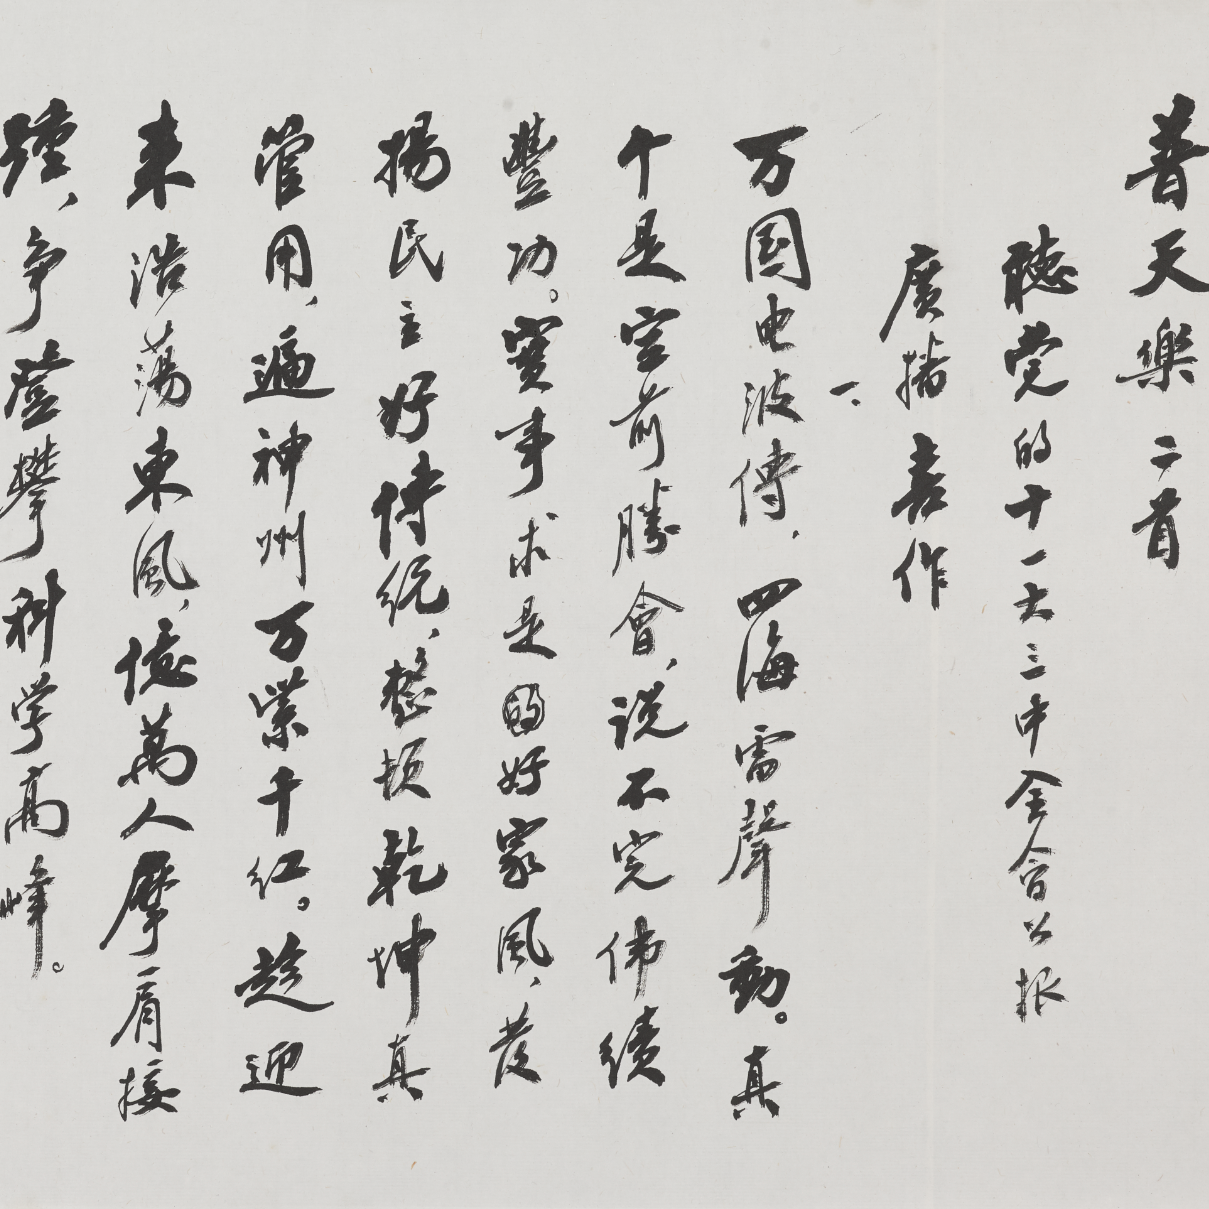 普天樂二首
聽党的十一大三中全会公报
廣播喜作
一、
万国电波傳、四海雷聲動。真
个是空前勝會，说不完伟績
豐功。实事求是的好家風、发
揚民主好傳统，整顿乾坤真
管用，遍神州万紫千红。趁迎
来浩荡東風，億萬人摩肩接
踵，争登攀科学高峰。